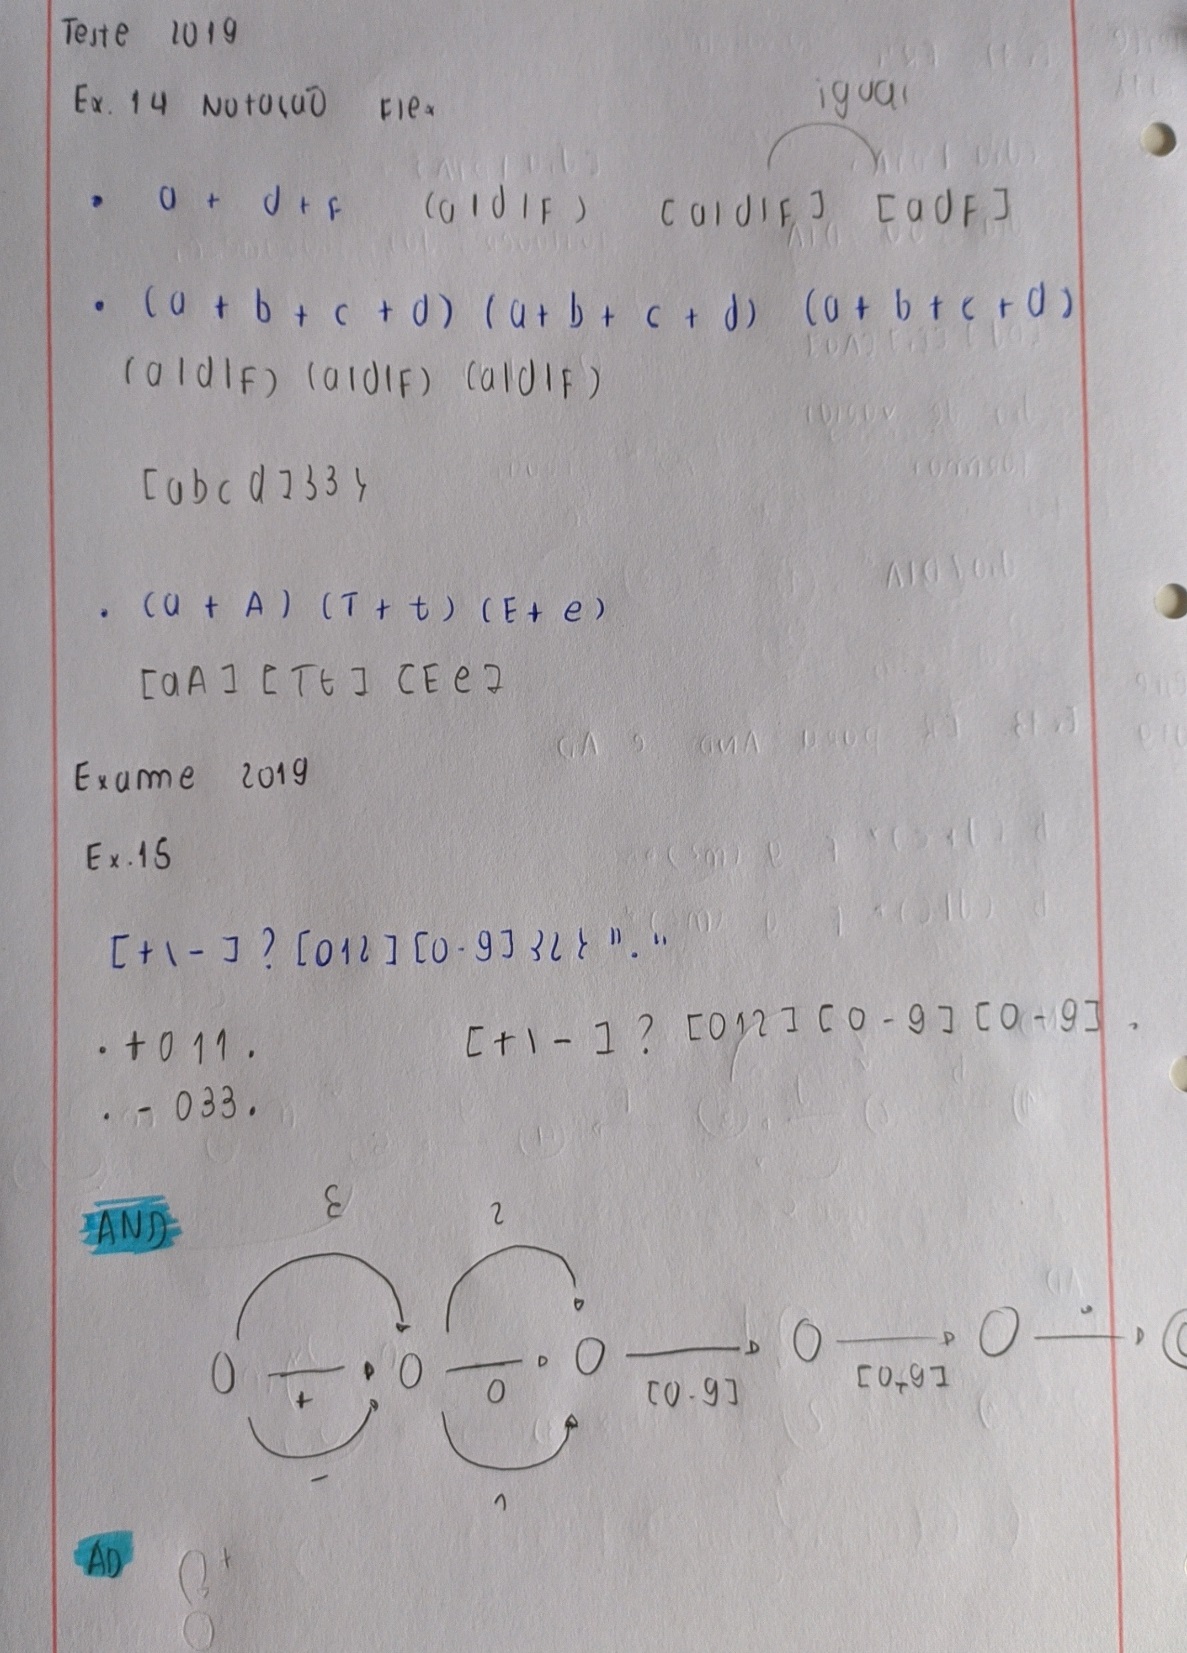 Teste 2019
Ex. 14 Notação Flex
igual
• a + d + F (a|d|F) [a|d|F] [adF]
• (a + b + c + d) (a + b + c + d) (a + b + c + d)
(a|d|F) (a|d|F) (a|d|F)
[abcd]{3}
• (a + A) (T + t) (E + e)
[aA] [Tt] [Ee]
Exame 2019
Ex. 15
[+\-]?[012][0-9]{2}"."
• +011. [+\-]?[012][0-9][0-9].
• -033.
AND
ε 2
+ 0 [0-9] [0-9] .
- 1
AD
+